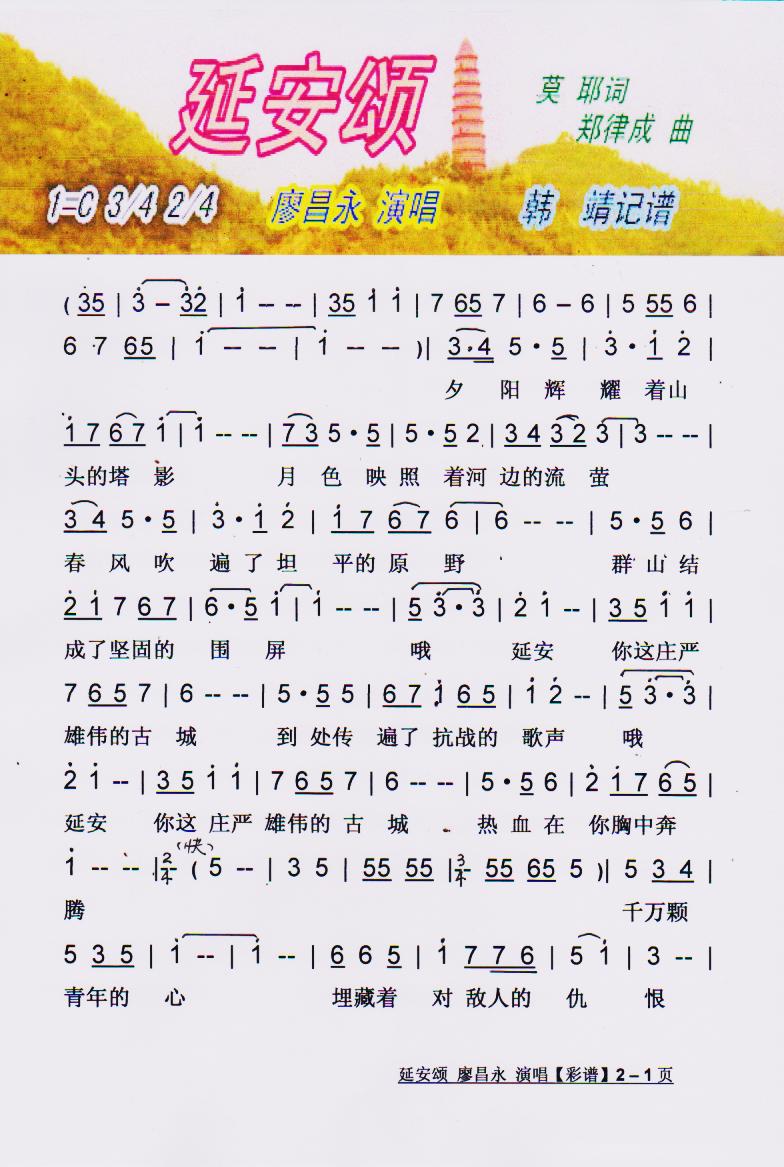 延安颂
莫 耶词
郑律成 曲
1=C 3/4 2/4 廖昌永 演唱 韩 靖记谱
( 35 | 3 – 32 | 1 – – | 35 1 1 | 7 65 7 | 6 – 6 | 5 55 6 |
6 7 65 | 1 – – | 1 – – )| 3·4 5·5 | 3·1 2 |
夕 阳 辉 耀 着山
17 67 1 | 1 -- -- | 73 5·5 | 5·5 2 | 34 32 3 | 3 -- -- |
头的塔 影 月 色 映 照 着河 边的流 萤
34 5·5 | 3·1 2 | 17 67 6 | 6 -- -- | 5·5 6 |
春 风 吹 遍 了 坦 平的 原 野 群 山 结
21 7 67 | 6·5 1 | 1 -- -- | 5 3·3 | 2 1 -- | 35 1 1 |
成了坚固的 围 屏 哦 延安 你这庄严
7 657 | 6 -- -- | 5·55 | 67 1 65 | 1 2 -- | 5 3·3 |
雄伟的古 城 到 处传 遍了 抗战的 歌声 哦
2 1 -- | 35 1 1 | 7 65 7 | 6 -- -- | 5·5 6 | 2 17 65 |
延安 你这 庄严 雄伟的 古 城 热 血 在 你胸中奔
1 -- -- |2/4 (快) ( 5 -- | 3 5 | 55 55 |3/4 55 55 5 )| 5 34 |
腾 千万颗
5 35 | 1 -- | 1 -- | 6 65 | 1 776 | 5 1 | 3 -- |
青年的 心 埋藏着 对 敌人的 仇 恨
延安颂 廖昌永 演唱【彩谱】2－1页